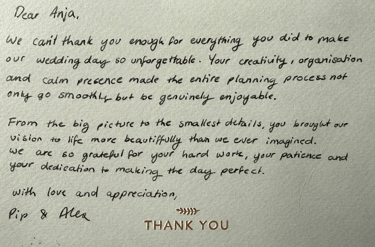 Dear Anja,
We can't thank you enough for everything you did to make
our wedding day so unforgettable. Your creativity, organisation
and calm presence made the entire planning process not
only go smoothly but be genuinely enjoyable.
From the big picture to the smallest details, you brought our
vision to life more beautifully than we ever imagined.
We are so grateful for your hard work, your patience and
your dedication to making the day perfect.
with love and appreciation,
Pip & Alex
THANK YOU